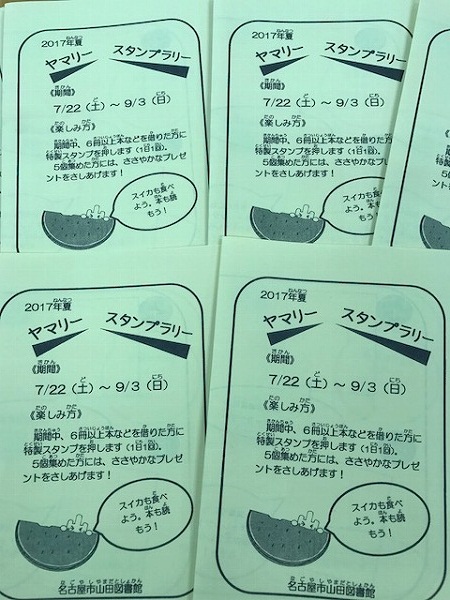 2017年夏
ヤマリー スタンプラリー
《期間》
7/22（土）～9/3（日）
《楽しみ方》
期間中、6冊以上本などを借りた方に
特製スタンプを押します（1日1回）。
5個集めた方には、ささやかなプレゼ
ントをさしあげます！
スイカも食べ
よう。本も読
もう！
2017年夏
ヤマリー スタンプラリー
《期間》
7/22（土）～9/3（日）
《楽しみ方》
期間中、6冊以上本などを借りた方に
特製スタンプを押します（1日1回）。
5個集めた方には、ささやかなプレゼ
ントをさしあげます！
スイカも食べ
よう。本も読
もう！
2017年夏
ヤマリー スタンプラリー
《期間》
7/22（土）～9/3（日）
《楽しみ方》
期間中、6冊以上本などを借りた方に
特製スタンプを押します（1日1回）。
5個集めた方には、ささやかなプレゼ
ントをさしあげます！
スイカも食べ
よう。本も読
もう！
名古屋市山田図書館
2017年夏
ヤマリー スタンプラリー
《期間》
7/22（土）～9/3（日）
《楽しみ方》
期間中、6冊以上本などを借りた方に
特製スタンプを押します（1日1回）。
5個集めた方には、ささやかなプレゼ
ントをさしあげます！
スイカも食べ
よう。本も読
もう！
名古屋市山田図書館